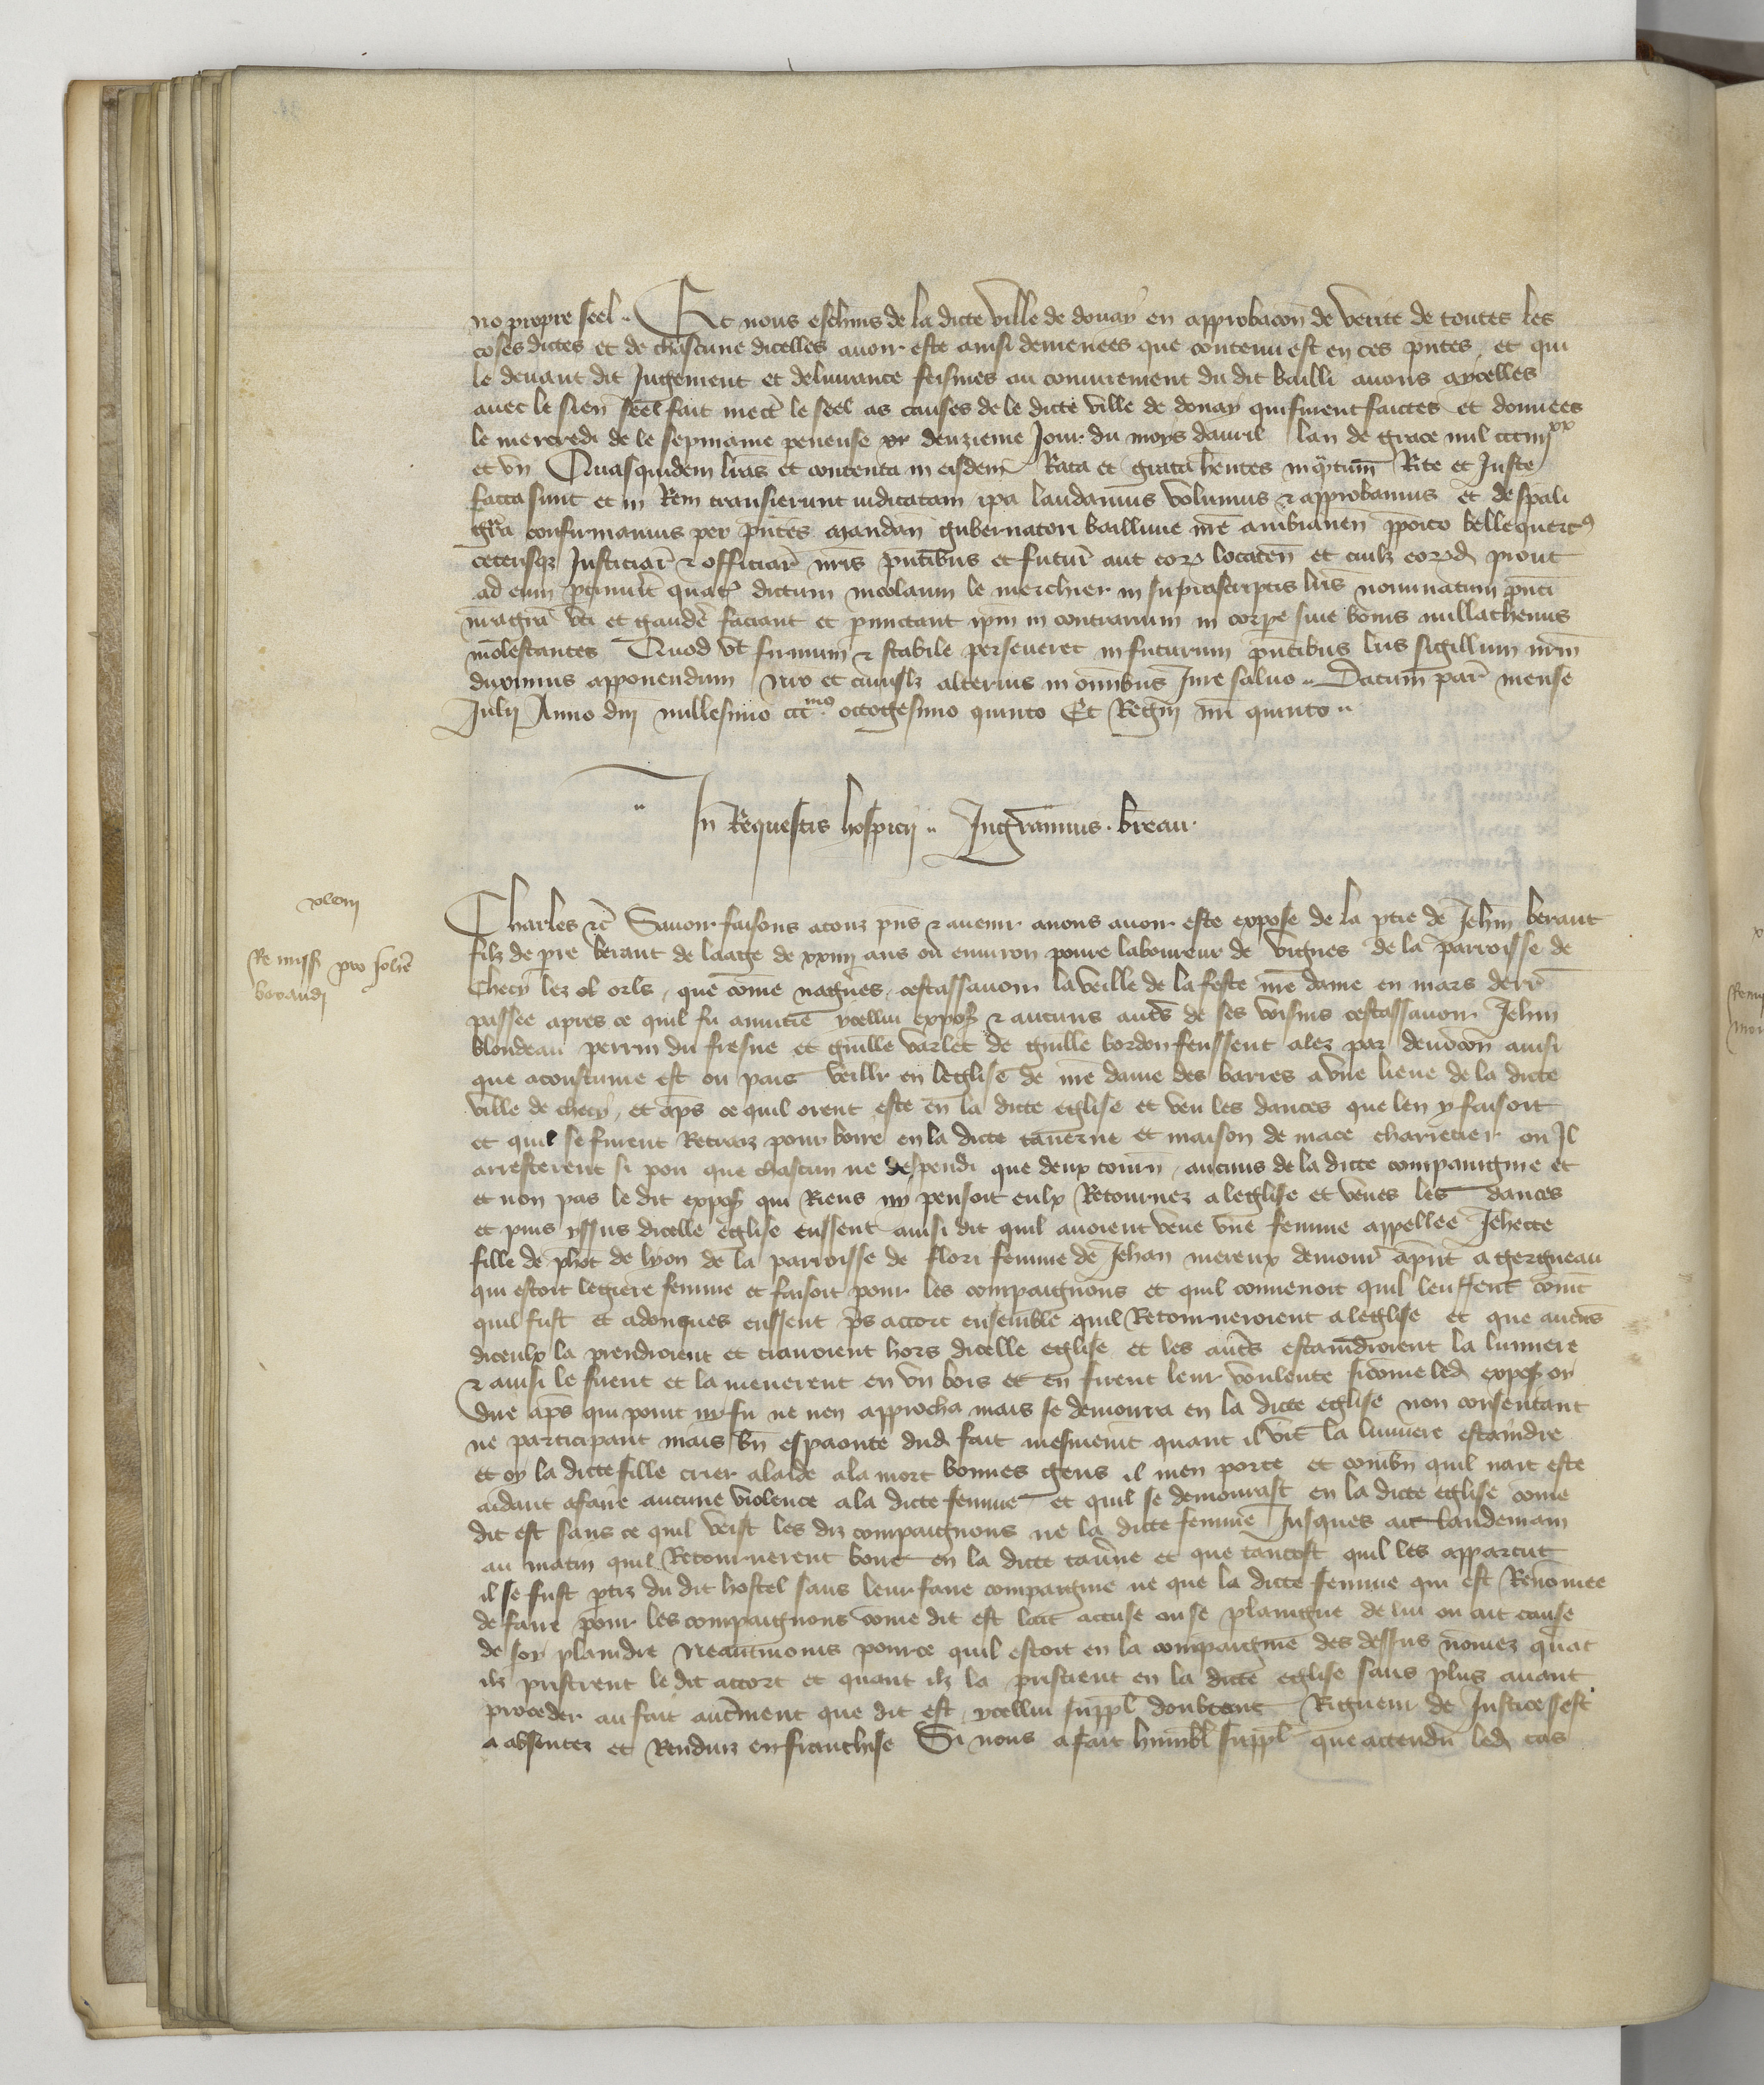 no propre seel .. Et nous eschins de la dicte ville de douay en approbacon de verite de toutes les
coses dictes et de chascune dicelles auoir este ainsi demenees que contenu est en ces pntes et qui
le deuant dit Jugement et deliurance feismes au coniurement du dit bailli auons aycelles
auec le sien seel fait mectre le seel as causes de le dicte ville de douay qui furent faictes et donnees
le mercredi de le sepmaine peneuse deuzieme Jour du moys dauril lan de grace mil ccc iiij xx
et vn Quasquidem lras et contenta in eisdem Rata et grata hentes inqtum Rite et Juste
facta sunt et in Rem transierunt iudicatam ipa laudamus volumus & approbamus et de spali
gra confirmamus per pntes mandan gubernatori bailliuie nre ambianen pposito bellequerc9
ceterisqz Justiciar & officiar nris pntibus et futur aut eor locaten et cuilz eord prout
ad eum ptinuit quat9 dictum nicolaum le merchier in suprascriptis lris nominatum pnti
nra gra vti et gaudere faciant et pmictant ipm in contrarium in corpe siue bonis nullathenus
molestantes Quod vt firmum & stabile perseueret in futurum pntibus lris sigillum nrm
duximus apponendum nro et cuiuslz alterius in omnibus Jure saluo .. Datum par mense
Julij Anno dnj millesimo ccc mo octogesimo quinto Et Regnj nri quinto ..
.. In Requestis hospicij .. Ingrannus . breau .
xlviij
Remissi pro Johe
beraudj
Charles &c Sauoir faisons a touz pns & auenir a nous auoir este expose de la ptie de Jehin beraut
filz de pre beraut de laage de xxiiij ans ou enuiron poure laboureur de vignes de la parroisse de
Checy lez ol orls, que come nagues, cestassauoir la veille de la feste nre dame en mars derr
passee apres ce quil fu anuitie ycellui expos & aucuns autres de ses voisins cestassauoir Jehin
blondeau perrin du fresne et guille varlet de guille bordon feussent alez par deuocon ainsi
que acoustume est ou pais veillr en leglise de nre dame des barres a vne lieue de la dicte
ville de checy, et aps ce quil orent este en la dicte eglise et veu les dances que len y faisoit
et quil se furent Retraiz pour boire en la dicte tauerne et maison de mace charretier ou Il
arresterent si pou que chascun ne despendi que deux tourn, aucuns de la dicte compaignie et
et non pas le dit expos qui Riens ny pensoit eulx Retournez a leglise et venes les dances
et puis yssus dicelle eglise eussent ainsi dit quil auoient veue vne femme appellee Jehecte
fille de phot de lyon de la parroisse de flori femme de Jehan mereux demour apnt a gergueau
qui estoit legiere femme et faisoit pour les compaignons et quil conuenoit quil leussent comt
quil fust et adonques eussent ps accort ensemble quil Retourneroient a leglise et que aucuns
diceulx la prendroient et trairoient hors dicelle eglise et les autres estaindroient la lumiere
& ainsi le firent et la menerent en vn bois et en firent leur voulente si come led expos oy
dire aps qui point ny fu ne nen approcha mais se demoura en la dicte eglise non consentant
ne participant mais bn espaonte dud fait mesmemt quant il vit la lumiere estaindre
et oy la dicte fille crier alaide ala mort bonnes gens il men porte et combn quil nait este
aidant afaire aucune violence a la dicte femme et quil se demourast en la dicte eglise come
dit est sans ce quil veist les diz compaignons ne la dicte femme Jusques au landemain
au matin quil Retournerent boire en la dicte tauerne et que tantost quil les apparcut
il se fust ptiz du dit hostel sans leur faire compaignie ne que la dicte femme qui est Renomee
de faire pour les compaignons come dit est lait accuse ou se plaingne de lui ou ait cause
de soy plaindre Neantmoins pour ce quil estoit en la compaignie des dessus nomez quat
ilz pristrent le dit accort et quant ilz la pristrent en la dicte eglise sans plus auant
proceder au fait autrement que dit est, ycellui suppl doubtant Rigueur de Justice sest
a absentez et Renduz en franchise Si nous a fait humbl suppl que actendu led cas